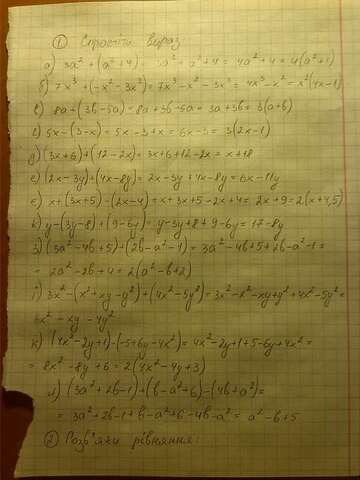 ① Спростіть вираз
а) 3a² + (a² + 4) = 3a² + a² + 4 = 4a² + 4 = 4(a² + 1)
б) 7x³ + (-x² - 3x³) = 7x³ - x² - 3x³ = 4x³ - x² = x²(4x - 1)
в) 8a + (3b - 5a) = 8a + 3b - 5a = 3a + 3b = 3(a + b)
г) 5x - (3 - x) = 5x - 3 + x = 6x - 3 = 3(2x - 1)
д) (3x + 6) + (12 - 2x) = 3x + 6 + 12 - 2x = x + 18
е) (2x - 3y) + (4x - 8y) = 2x - 3y + 4x - 8y = 6x - 11y
є) x + (3x + 5) - (2x - 4) = x + 3x + 5 - 2x + 4 = 2x + 9 = 2(x + 4,5)
ж) y - (3y - 8) + (9 - 6y) = y - 3y + 8 + 9 - 6y = 17 - 8y
з) (3a² - 4b + 5) + (2b - a² - 1) = 3a² - 4b + 5 + 2b - a² - 1 =
= 2a² - 2b + 4 = 2(a² - b + 2)
і) 3x² - (x² + xy - y²) + (4x² - 5y²) = 3x² - x² - xy + y² + 4x² - 5y² =
6x² - xy - 4y²
к) (4x² - 2y + 1) - (-5 + 6y - 4x²) = 4x² - 2y + 1 + 5 - 6y + 4x² =
= 8x² - 8y + 6 = 2(4x² - 4y + 3)
л) (3a² + 2b - 1) + (b - a² + 6) - (4b + a²) =
= 3a² + 2b - 1 + b - a² + 6 - 4b - a² = a² - b + 5
② Розв'яжи рівняння: